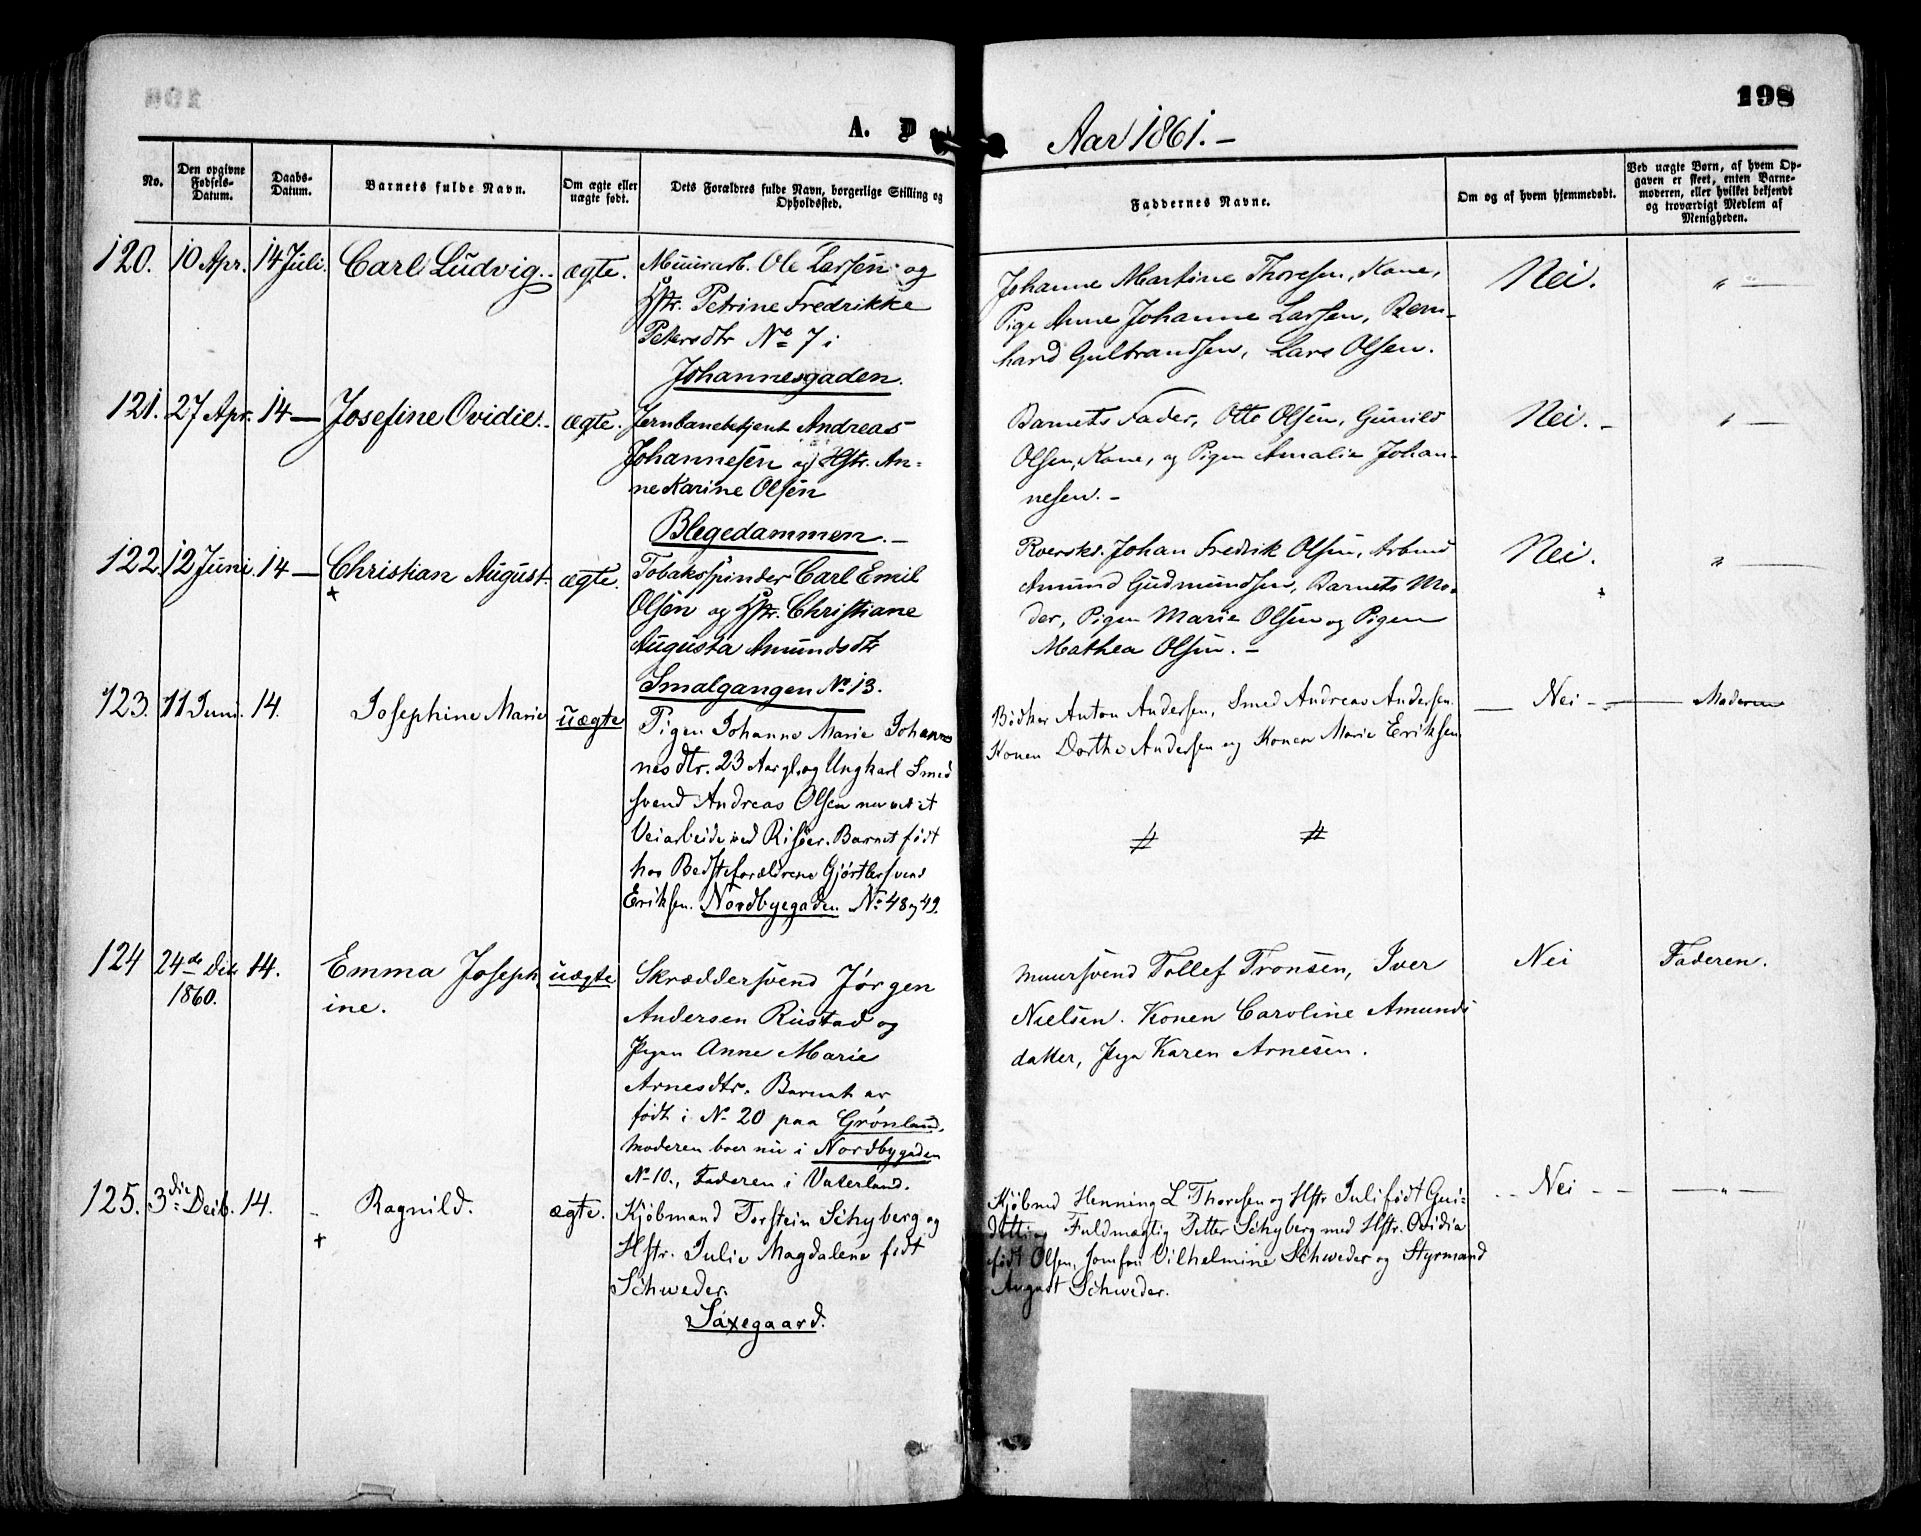 198
A. D
Aar 1861.-
No.
Den opgivne Fødsels-Datum.
Daabs-Datum.
Barnets fulde Navn.
Om ægte eller uægte født.
Dets Forældres fulde Navn, borgerlige Stilling og Opholdssted.
Faddernes Navne.
Om og af hvem hjemmedøbt.
Ved uægte Børn, af hvem Opgaven er skeet, enten Barnemoderen, eller hvilket bekjendt og troværdigt Medlem af Menigheden.
120. 10 Apr. 14 Juli. Carl Ludvig. ægte. Muurarb. Ole Larsen og
Hstr. Petrine Fredrikke
Petersdtr No 7 i
Johannesgaden.
Johanne Martine Thoresen, Kone,
Pige Anne Johanne Larsen, Bern-
hard Gulbrandsen, Lars Olsen.
Nei. "
121. 27 Apr. 14 — Josefine Ovidie. ægte. Jernbanebetjent Andreas
Johannesen og Hstr. An-
ne Karine Olsen
Blegedammen. -
Barnets Fader, Otto Olsen, Gunild
Olsen, Kone, og Pigen Amalie Johan-
nesen. -
Nei. - "
122. 12 Juni 14 — Christian August. ægte. Tobaksspinder Carl Emil
+
Olsen og Hstr. Christiane
Augusta Amundsdtr
Smalgangen No 13.
Johan Fredrik Olsen, Arbmd
Amund Gudmundsen, Barnets Mo-
der, Pigen Marie Olsen og Pigen
Mathea Olsen. -
Nei. "
123. 11 Juni. 14. Josephine Marie uægte Pigen Johanne Marie Johan
nesdtr. 23 Aar gl. og Ungkarl Smed
svend Andreas Olsen
Veiarbeide ved Risøer. Barnet født
hos Bedsteforældrene Gjørtlersvend
Eriksen. Nordbyegaden No 48 og 49.
Bødker Anton Andersen, Smed Andreas Andersen.
Konen Dorthe Andersen og Konen Marie Eriksen
— Nei - — Moderen
124 24de Dec 1860. 14. Emma Joseph
ine.
uægte Skræddersvend Jørgen
Andersen Rustad og
Pigen Anne Marie
Arnesdtr. Barnet er
født i No 20 paa Grønland,
Moderen boer nu i Nordbygaden
No 10., Faderen i Vaterland.
Muursvend Tollef Tronsen, Iver
Nielsen. Konen Caroline Amunds
datter, Pige Karen Arnesen.
Nei Faderen.
125. 3die Decb. 14. - Ragnild. ægte. Kjøbmand Torstein Schyberg og
+
Hstr. Julie Magdalene født
Schweder.
Saxegaard.
Kjøbmd Henning L Thoresen og Hstr Juli født Gui-
detti og Fuldmægtig Petter Schyberg med Hstr. Ovidia
født Olsen, Jomfru Vilhelmine Schweder og Styrmand
August Schweder.
- - Nei - - — " —